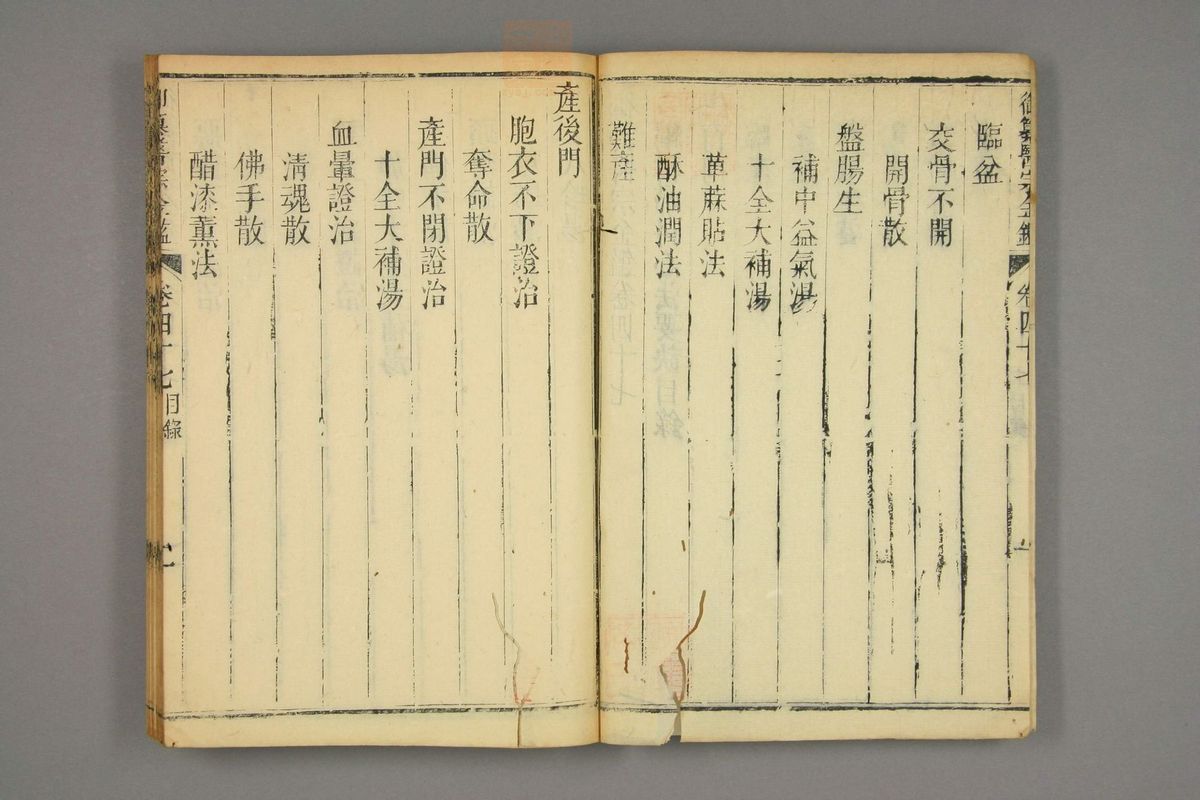 御纂醫宗金鑑 卷四十七 一
臨盆
交骨不開
開骨散
盤腸生
補中益氣湯
十全大補湯
萆蔴貼法
酥油潤法
難產
產後門
胞衣不下證治
奪命散
產門不閉證治
十全大補湯
血暈證治
清魂散
佛手散
醋漆薰法
卷四十七 目錄